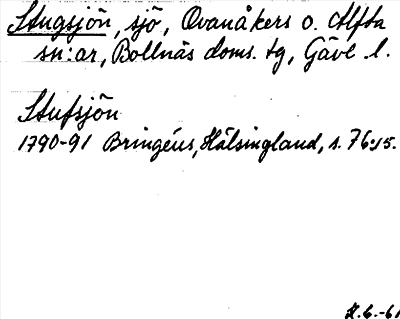 Stugsjön, sjö, Ovanåkers o. Alfta
sn:ar, Bollnäs doms. tg, Gävl. l.
Stufsjön
1790-91 Bringéus, Hälsingland, s. 76:15.
K.G.-61